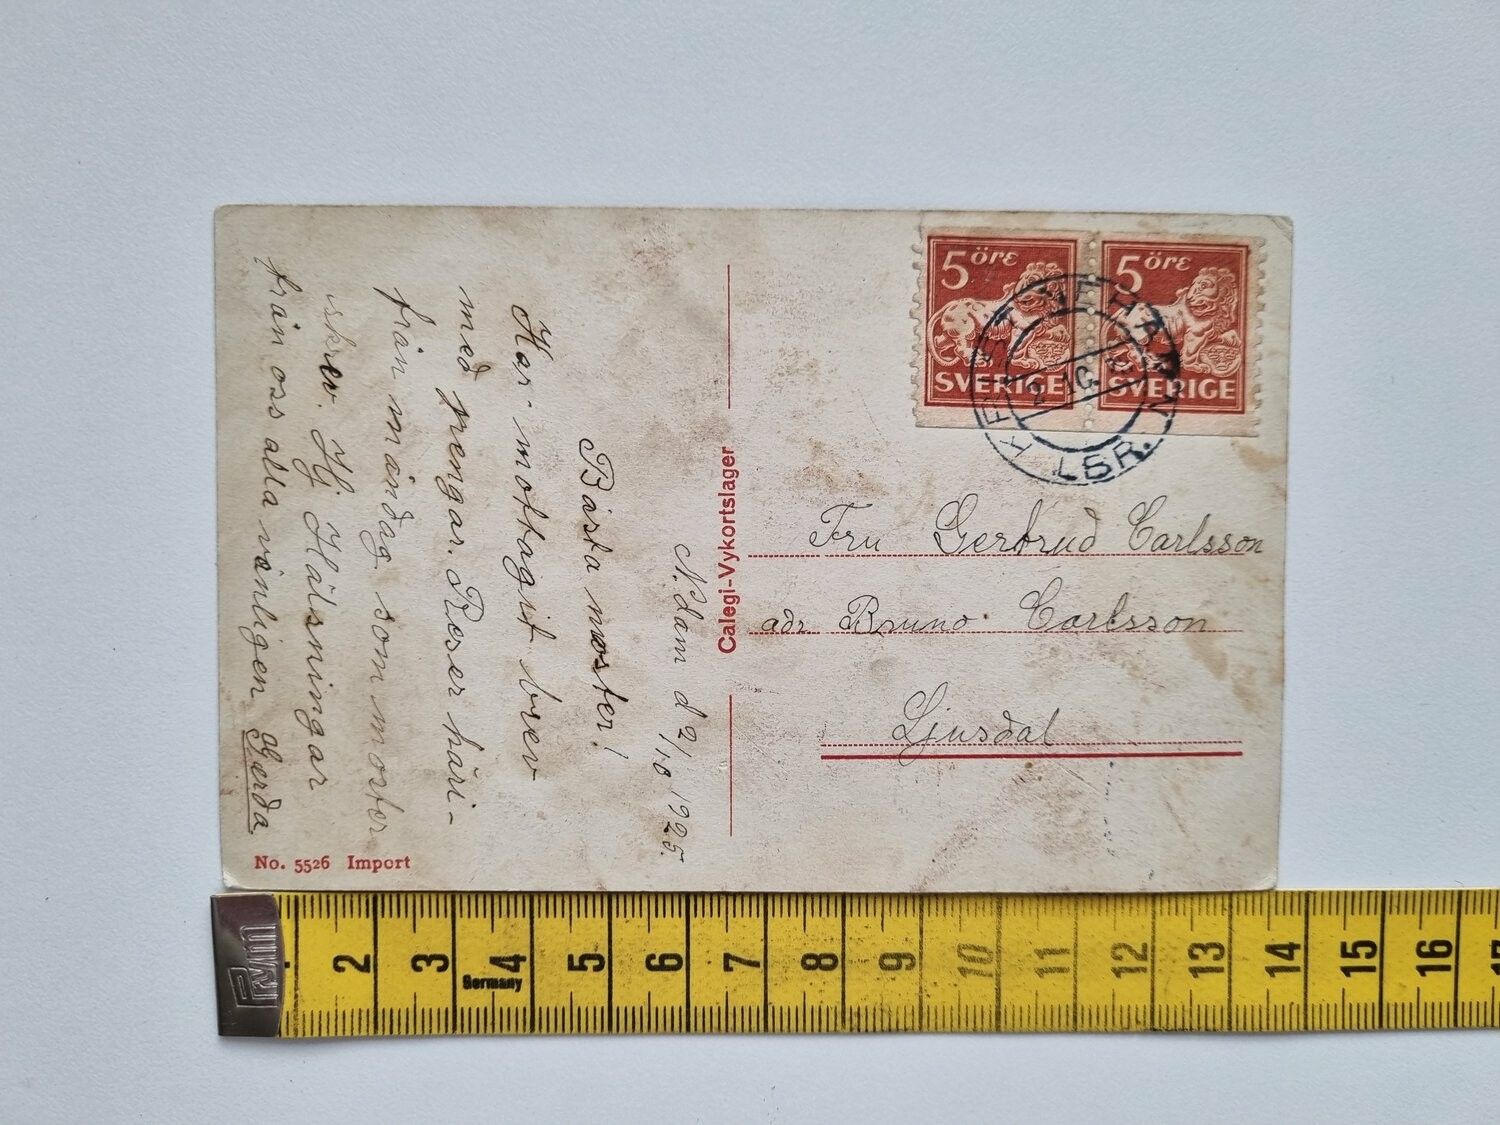 N.dam d 2/10 1925.
Bästa moster!
Har mottagit brev
med pengar. Reser häri-
från måndag, som moster
skrev. Hj Hälsningar
från oss alla vänligen Gerda
No. 5526 Import
Calegi-Vykortslager
5 öre
SVERIGE
5 öre
SVERIGE
LBR.
2 10
Fru Gertrud Carlsson
adr Bruno Carlsson
Ljusdal
PWM
2 3 4 5 6 7 8 9 10 11 12 13 14 15 16
Germany